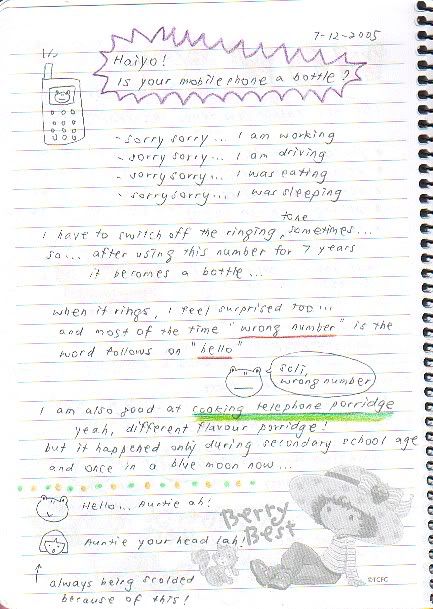 7-12-2005
Hi
Haiyo!
Is your mobile phone a bottle?
- sorry sorry... I am working
- sorry sorry... I am driving
- sorry sorry... I was eating
- sorry sorry... I was sleeping
I have to switch off the ringing tone, sometimes...
so... after using this number for 7 years
it becomes a bottle...
when it rings, I feel surprised too...
and most of the time "wrong number" is the
word follows on "hello"
soli,
wrong number
I am also good at cooking telephone porridge
yeah, different flavour porridge!
but it happened only during secondary school age
and once in a blue moon now...
Hello... Auntie ah!
Auntie your head lah!
always being scolded
because of this!
Berry
Best
©TCFC